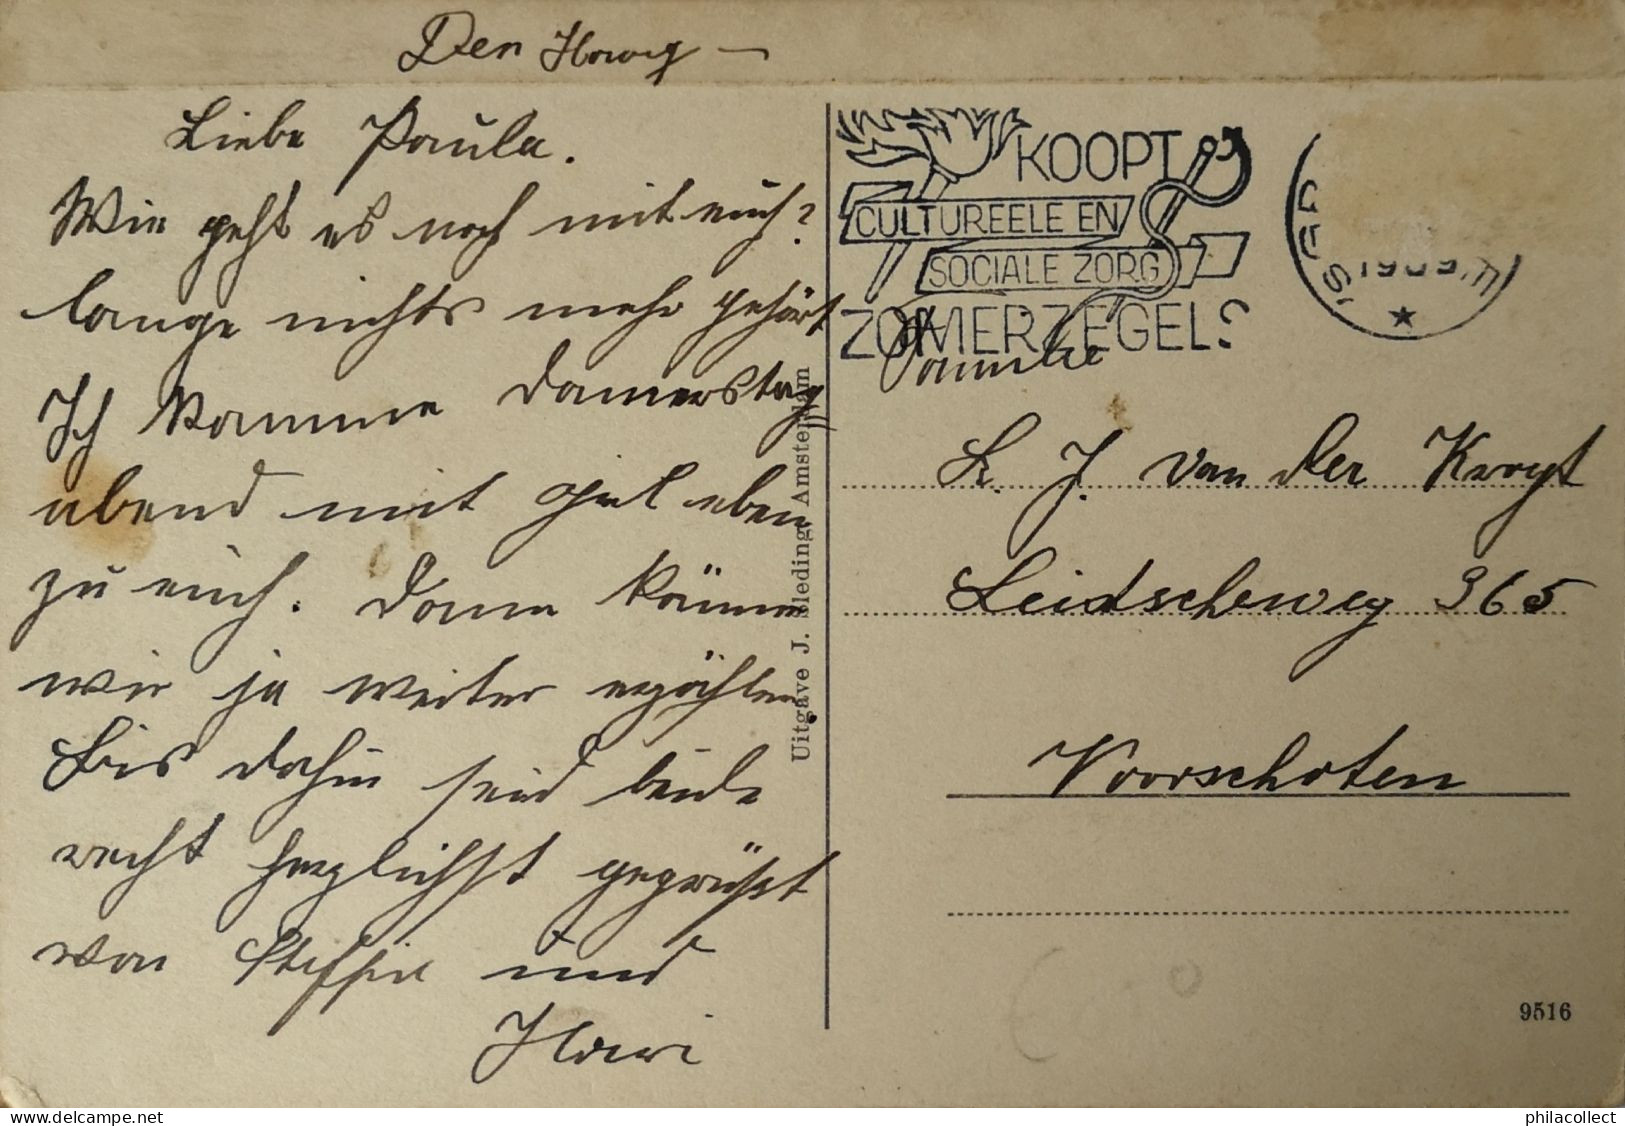 Den Haag –
Liebe Paula.
Wie geht es noch mit euch?
lange nichts mehr gehört
Ich komme Donnerstag
abend mit eben
zu euch. Dann können
wir ja weiter erzählen
Bis dahin seid beide
recht herzlichst gegrüßt
von Steffie und
Uitgave J. Sleding, Amsterdam
KOOPT
CULTUREELE EN
SOCIALE ZORG
ZOMERZEGELS
Familie
L. J. van der Krogt
Leidscheweg 365
Voorschoten
9516
philacollect